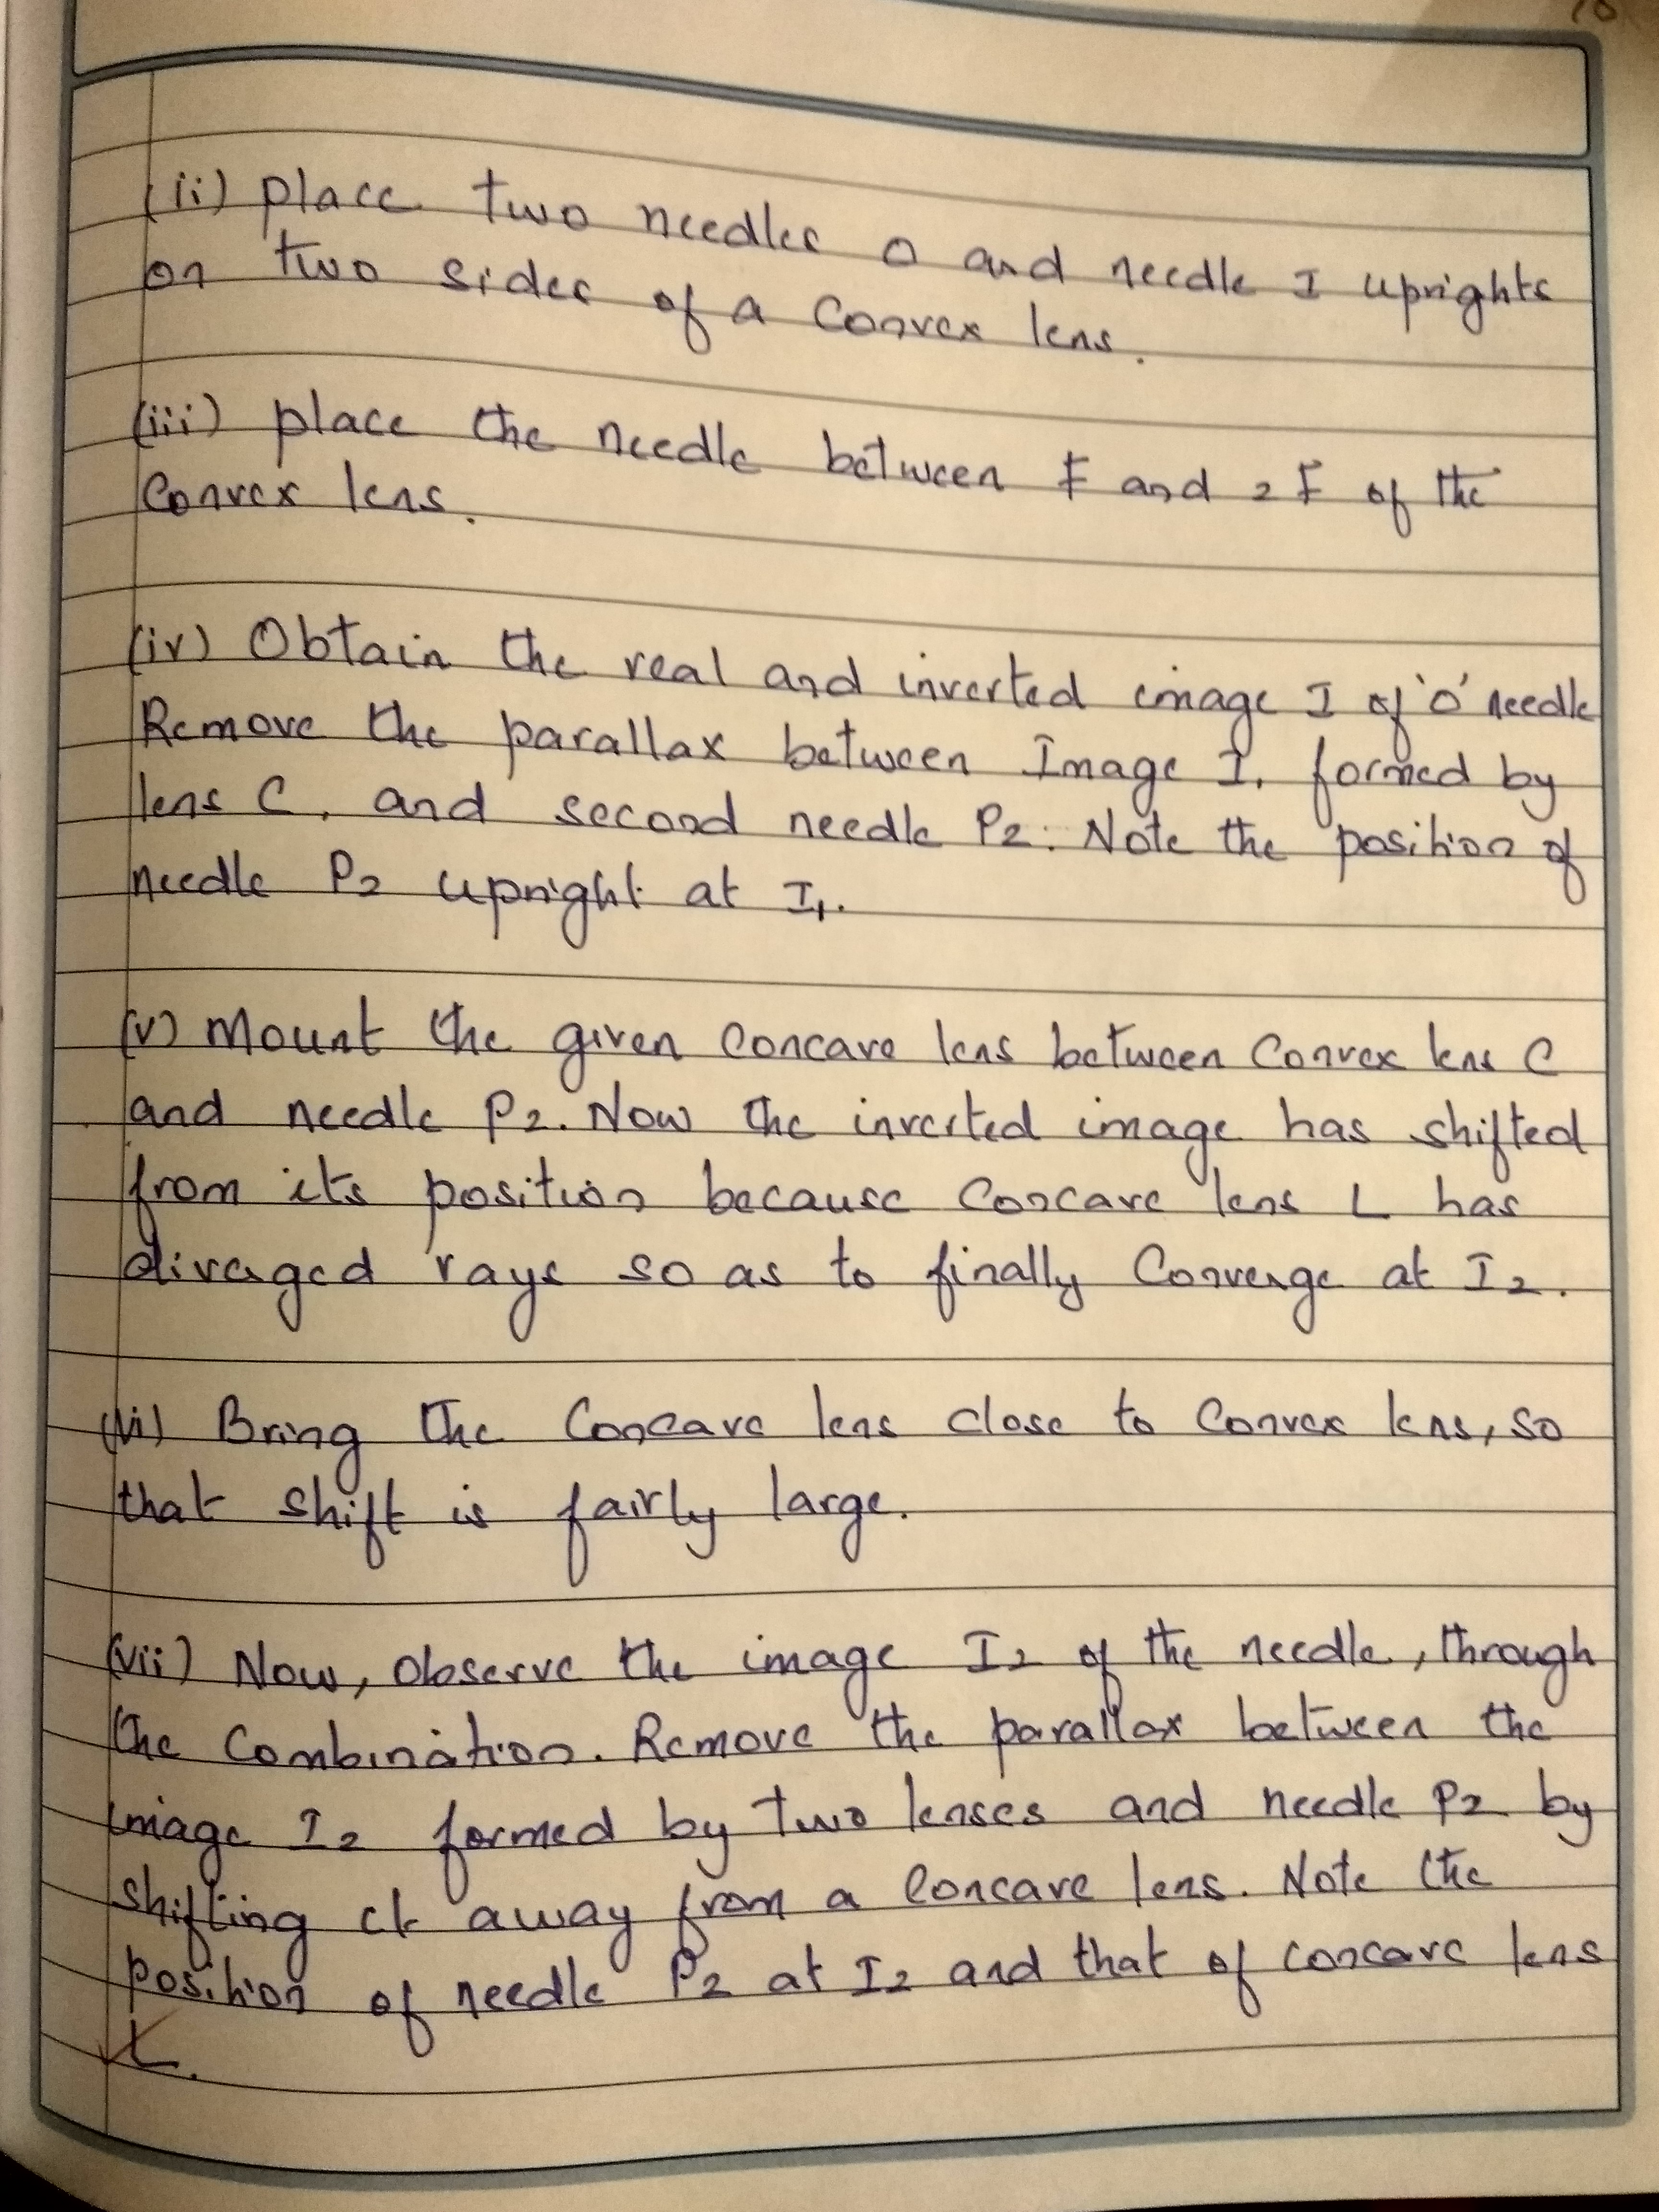 (ii) place two needles O and needle I uprights
on two sides of a Convex lens.
(iii) place the needle between F and 2F of the
Convex lens.
(iv) Obtain the real and inverted image I of 'O' needle
Remove the parallax between Image I, formed by
lens C, and second needle P2. Note the position of
needle P2 upright at I1.
(v) Mount the given Concave lens between Convex lens C
and needle P2. Now the inverted image has shifted
from its position because Concave lens L has
diverged rays so as to finally Converge at I2.
(vi) Bring the Concave lens close to Convex lens, so
that shift is fairly large.
(vii) Now, observe the image I2 of the needle, through
the Combination. Remove the parallax between the
image I2 formed by two lenses and needle P2 by
shifting it away from a Concave lens. Note the
position of needle P2 at I2 and that of concave lens
L.